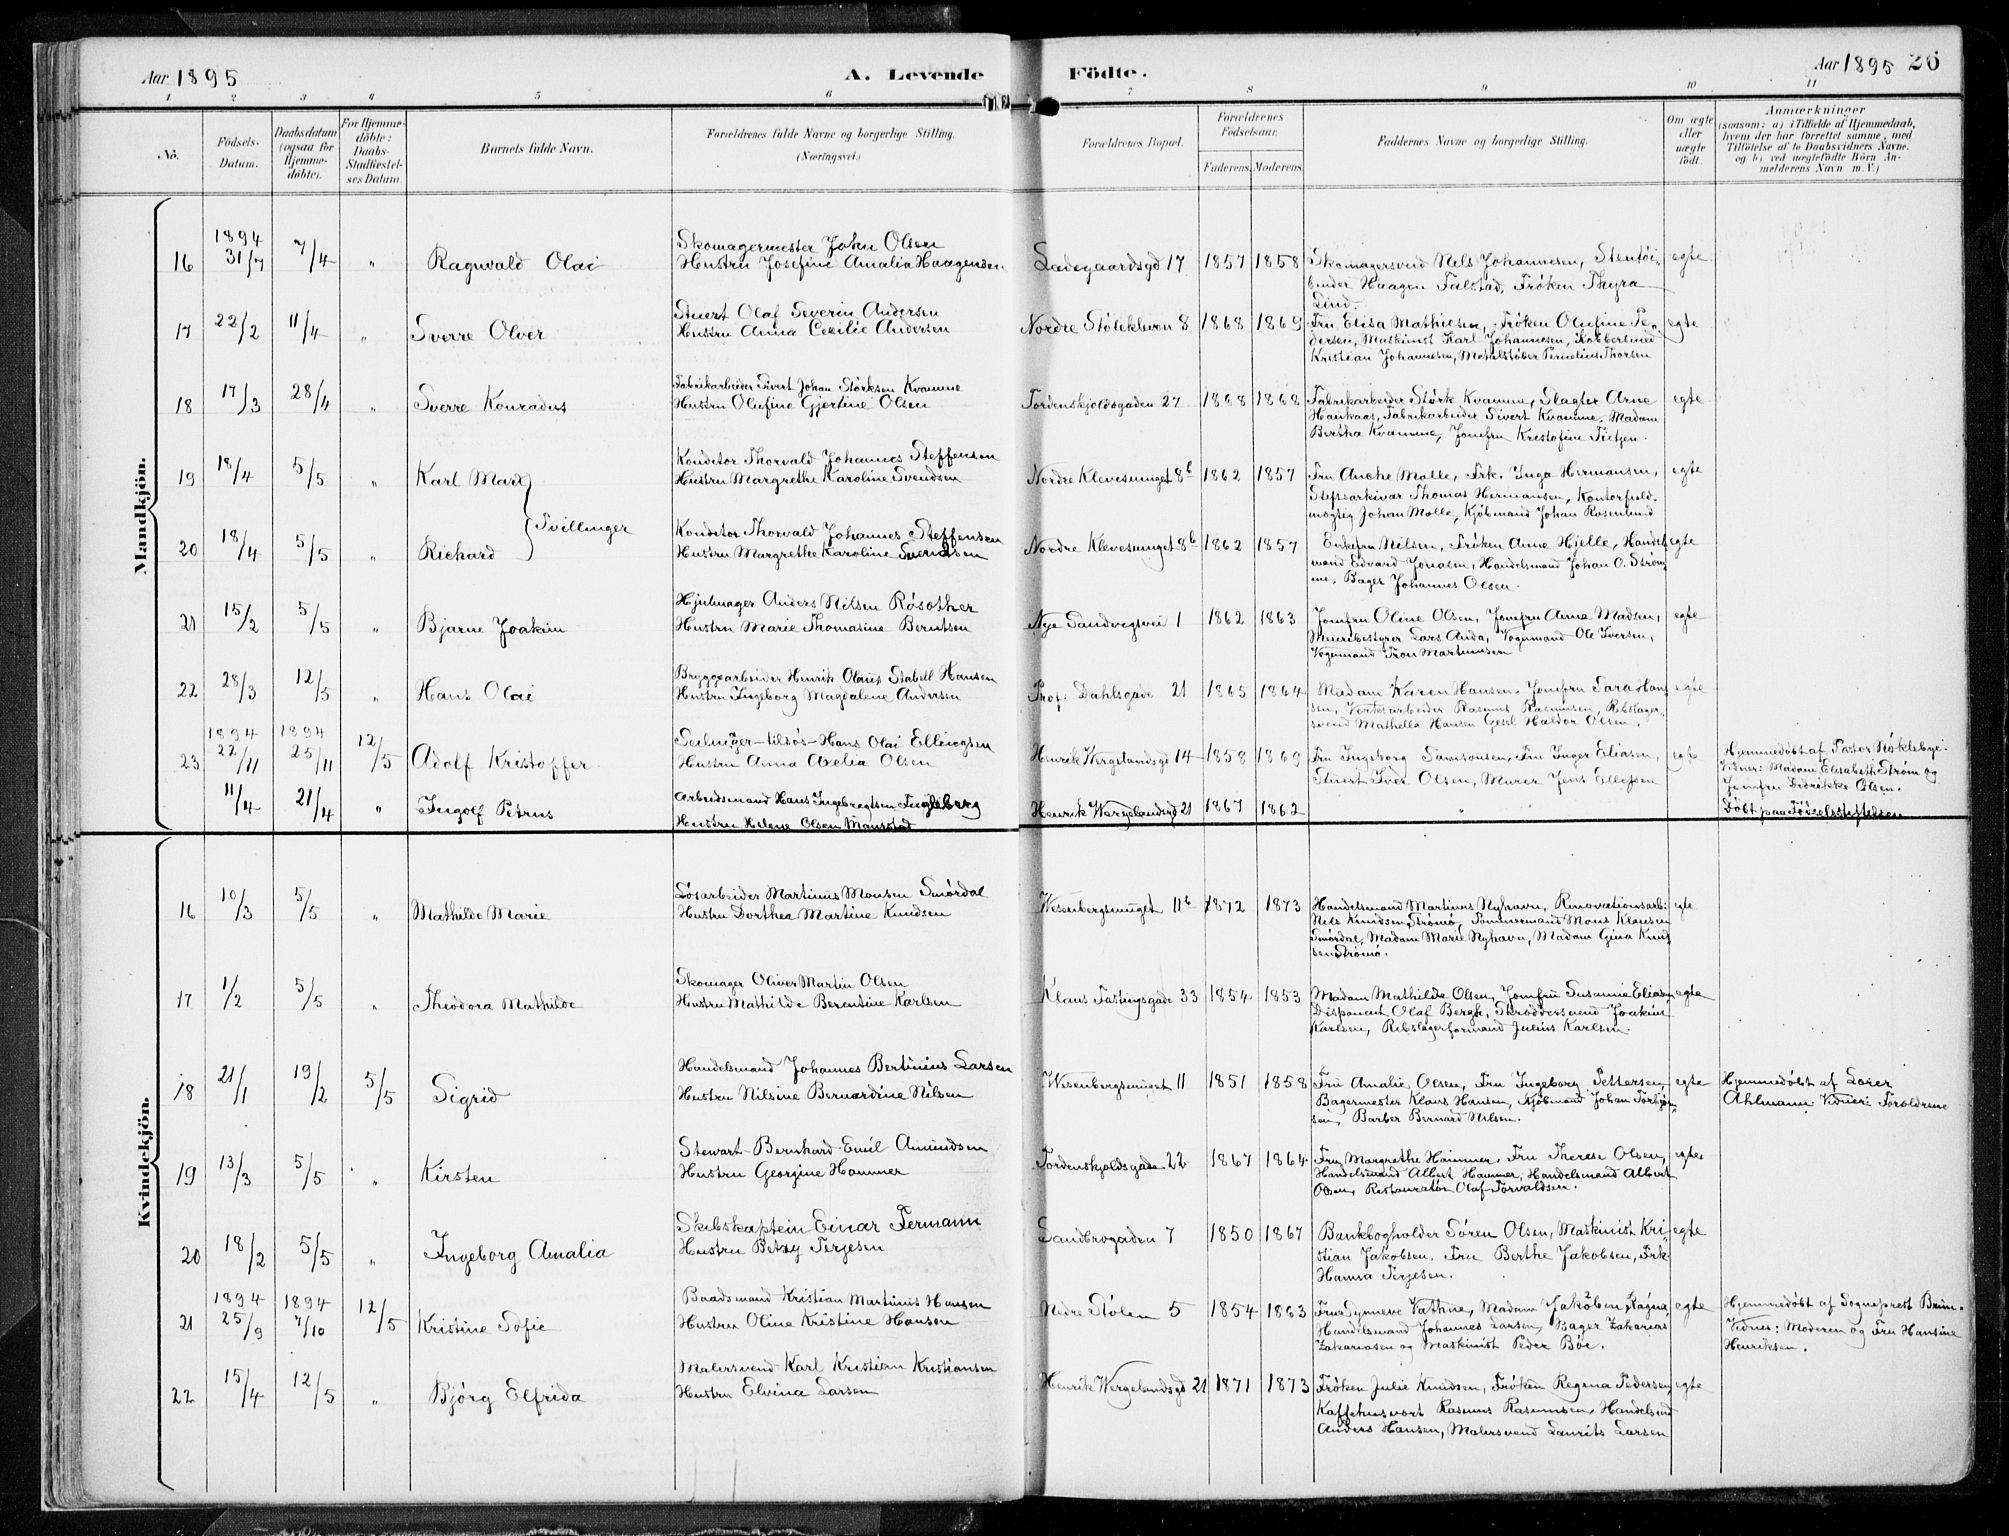 Aar 1895 A. Levende Födte. Aar 1895 26
1 2 3 4 5 6 7 8 9 10 11
No. Födsels-Datum. Daabsdatum (ogsaa for Hjemme-döbte). For Hjemme-döbte: Daabs-Stadfæstel-ses Datum. Barnets fulde Navn. Forældrenes fulde Navne og borgerlige Stilling. (Næringsvei.) Forældrenes Bopæl. Forældrenes Födselsaar. Faderens. Moderens. Faddernes Navne og borgerlige Stilling. Om ægte eller uægte födt. Anmærkninger (saasom: a) i Tilfælde af Hjemmedaab, hvem der har forrettet samme, med Tilföielse af to Daabsvidners Navne, og b) ved uægtefödte Börn An-melderens Navn m. V.)
Mandkjön.
16 1894 31/7 7/4 " Ragnvald Olai Skomagermester John Olsen
Hustru Josefine Amalia Haagensen Ladegaardsgd 17 1857 1858 Skomagersvend Nils Johannesen, Stentöi-
binder Haagen Falstad, Fröken Thyra
Lind. egte
17 22/2 11/4 " Sverre Olver Stuert Olaf Severin Andersen
Hustru Anna Cecilie Andersen Nordre Stölekleven 8 1868 1869 Fru Elisa Mathiesen, Fröken Olufine Pe-
dersen, Maskinist Karl Johannesen, Kobbersmed
Kristian Johannesen, Metalstöber Pernelius Thorsen egte
18 17/3 28/4 " Sverre Konradus Fabrikarbeider Sivert Johan Störksen Kvamme
Hustru Olufine Gjertine Olsen Tordenskjoldsgaden 27 1868 1868 Fabrikarbeider Störk Kvamme, Slagter Arne
Haukaas, Fabrikarbeider Sivert Kvamme, Madam
Bertha Kvamme, Jomfru Kristofine Tietjen. egte
19 18/4 5/5 " Karl Marx Konditor Thorvald Johannes Steffensen
Hustru Margrethe Karoline Svendsen Nordre Klevesmuget 8b 1862 1857 Fru Anche Molle, Frk. Inga Hermansen,
Thomas Hermansen, Kontorfuld-
mægtig Johan Molle, Kjöbmand Johan Rosenlund egte
Tvillinger
20 18/4 5/5 " Richard Konditor Thorvald Johannes Steffensen
Hustru Margrethe Karoline Svendsen Nordre Klevesmuget 8b 1862 1857 Enkefru Nilsen, Fröken Anne Hjelle, Handels
mand Edvard Jonasen, Handelsmand Johan O. Ström
me, Bager Johannes Olsen. egte
21 15/2 5/5 " Bjarne Joakim Hjulmager Anders Nilsen Rösother
Hustru Marie Thomasine Berntsen Nye Sandvigsvei 1 1862 1863 Jomfru Oline Olsen, Jomfru Anna Madsen,
Meieribestyrer Lars Anda, Vognmand Ole Iversen,
Vognmand Tron Martinusen egte
22 28/3 12/5 " Hans Olai Bryggearbeider Henrik Olaus Stabell Hansen
Hustru Ingeborg Magdalene Andersen Prof: Dahlsgade 21 1865 1864 Madam Karen Hansen, Jomfru Sara Han
sen, Verksarbeider Rasmus Rasmusen, Rebslager-
svend Mathella Hansen Gesel Haldor Olsen. egte
23 1894 22/11 1894 25/11 12/5 Adolf Kristoffer Hans Olai Ellingsen
Hustru Anna Axelia Olsen Henrik Wergelandsgd 14 1858 1869 Fru Ingeborg Samsonsen, Fru Inger Eliasen,
Stuert Iver Olsen, Murer Jens Ellefsen egte Hjemmedöbt af Pastor Nöklebye.
Vidner: Madam Elisabeth Ström og
Jomfru Didrikke Olsen.
11/4 21/4 " Ingolf Petrus Arbeidsmand Hans Ingebregtsen
Hustru Helene Olsen Henrik Wergelandsgd 21 1867 1862 " Döbt paa Födselsstiftelsen
Kvindekjön.
16 10/3 5/5 " Mathilde Marie Lösarbeider Martinus Monsen Smördal
Hustru Dorthea Martine Knudsen Wesenbergsmuget 11b 1872 1873 Handelsmand Martinus Nyhavn, Renovationsarb:
Nils Knudsen Strömö, Tömmermand Mons Klausen
Smördal, Madam Marie Nyhavn, Madam Gina Knud
sen Strömö. egte
17 1/2 5/5 " Theodora Mathilde Skomager Oliver Martin Olsen
Hustru Mathilde Berentine Karlsen Klaus Fastingsgade 33 1854 1853 Madam Mathilde Olsen, Jomfru Susanne Eliasen
Disponent Olaf Bergh, Skröddersvend Joakim
Karlsen, Rebslagerformand Julius Karlsen. egte
18 21/1 19/2 5/5 Sigrid Handelsmand Johannes Bertinius Larsen
Hustru Nilsine Bernardine Nilsen Wesenbergsmuget 11 1851 1858 Fru Amalie Olsen, Fru Ingeborg Pettersen,
Bagermester Klaus Hansen, Kjöbmand Johan Torbjörn
sen, Barber Bernard Nilsen. egte Hjemmedöbt af Lærer
Ahlmann. Vidner: Foröldrene
19 13/3 5/5 " Kirsten Stewart Bernhard Emil Amundsen
Hustru Georgine Hammer Tordenskjoldsgade 22 1867 1864 Fru Margrethe Hammer, Fru Therese Olsen,
Handelsmand Albert Hammer, Handelsmand Albert
Olsen, Restauratör Olaf Torvaldsen. egte
20 18/2 5/5 " Ingeborg Amalia Skibskaptein Einar Fermann
Hustru Betzy Terjesen Sandbrogaden 7 1850 1867 Bankbogholder Sören Olsen, Maskinist Kri
stian Jakobsen, Fru Berthe Jakobsen, Frk
Hanna Terjesen. egte
21 1894 25/9 1894 7/10 12/5 Kristine Sofie Baadsmand Kristian Martinus Hansen
Hustru Oline Kristine Hansen Nedre Stölen 5 1854 1863 Fru Synneve Vathne, Madam Jakobsen, Ragna
Handelsmand Johannes Larsen, Bager Zakarias
Zakariasen og Maskinist Peder Böe. egte Hjemmedöbt af Sogneprest Brun.
Vidner: Moderen og Fru Hansine
Henriksen.
22 15/4 12/5 " Björg Elfrida Malersvend Karl Kristian Kristiansen
Hustru Elvina Larsen Henrik Wergelandsgd 21 1871 1873 Fröken Julie Knudsen, Fröken Regina Pedersen,
Kaffehusvært Rasmus Rasmusen, Handelsmd
Anders Hansen, Malersvend Laurits Larsen egte